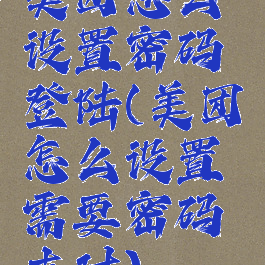 美团怎么
设置密码
登陆(美团
怎么设置
需要密码